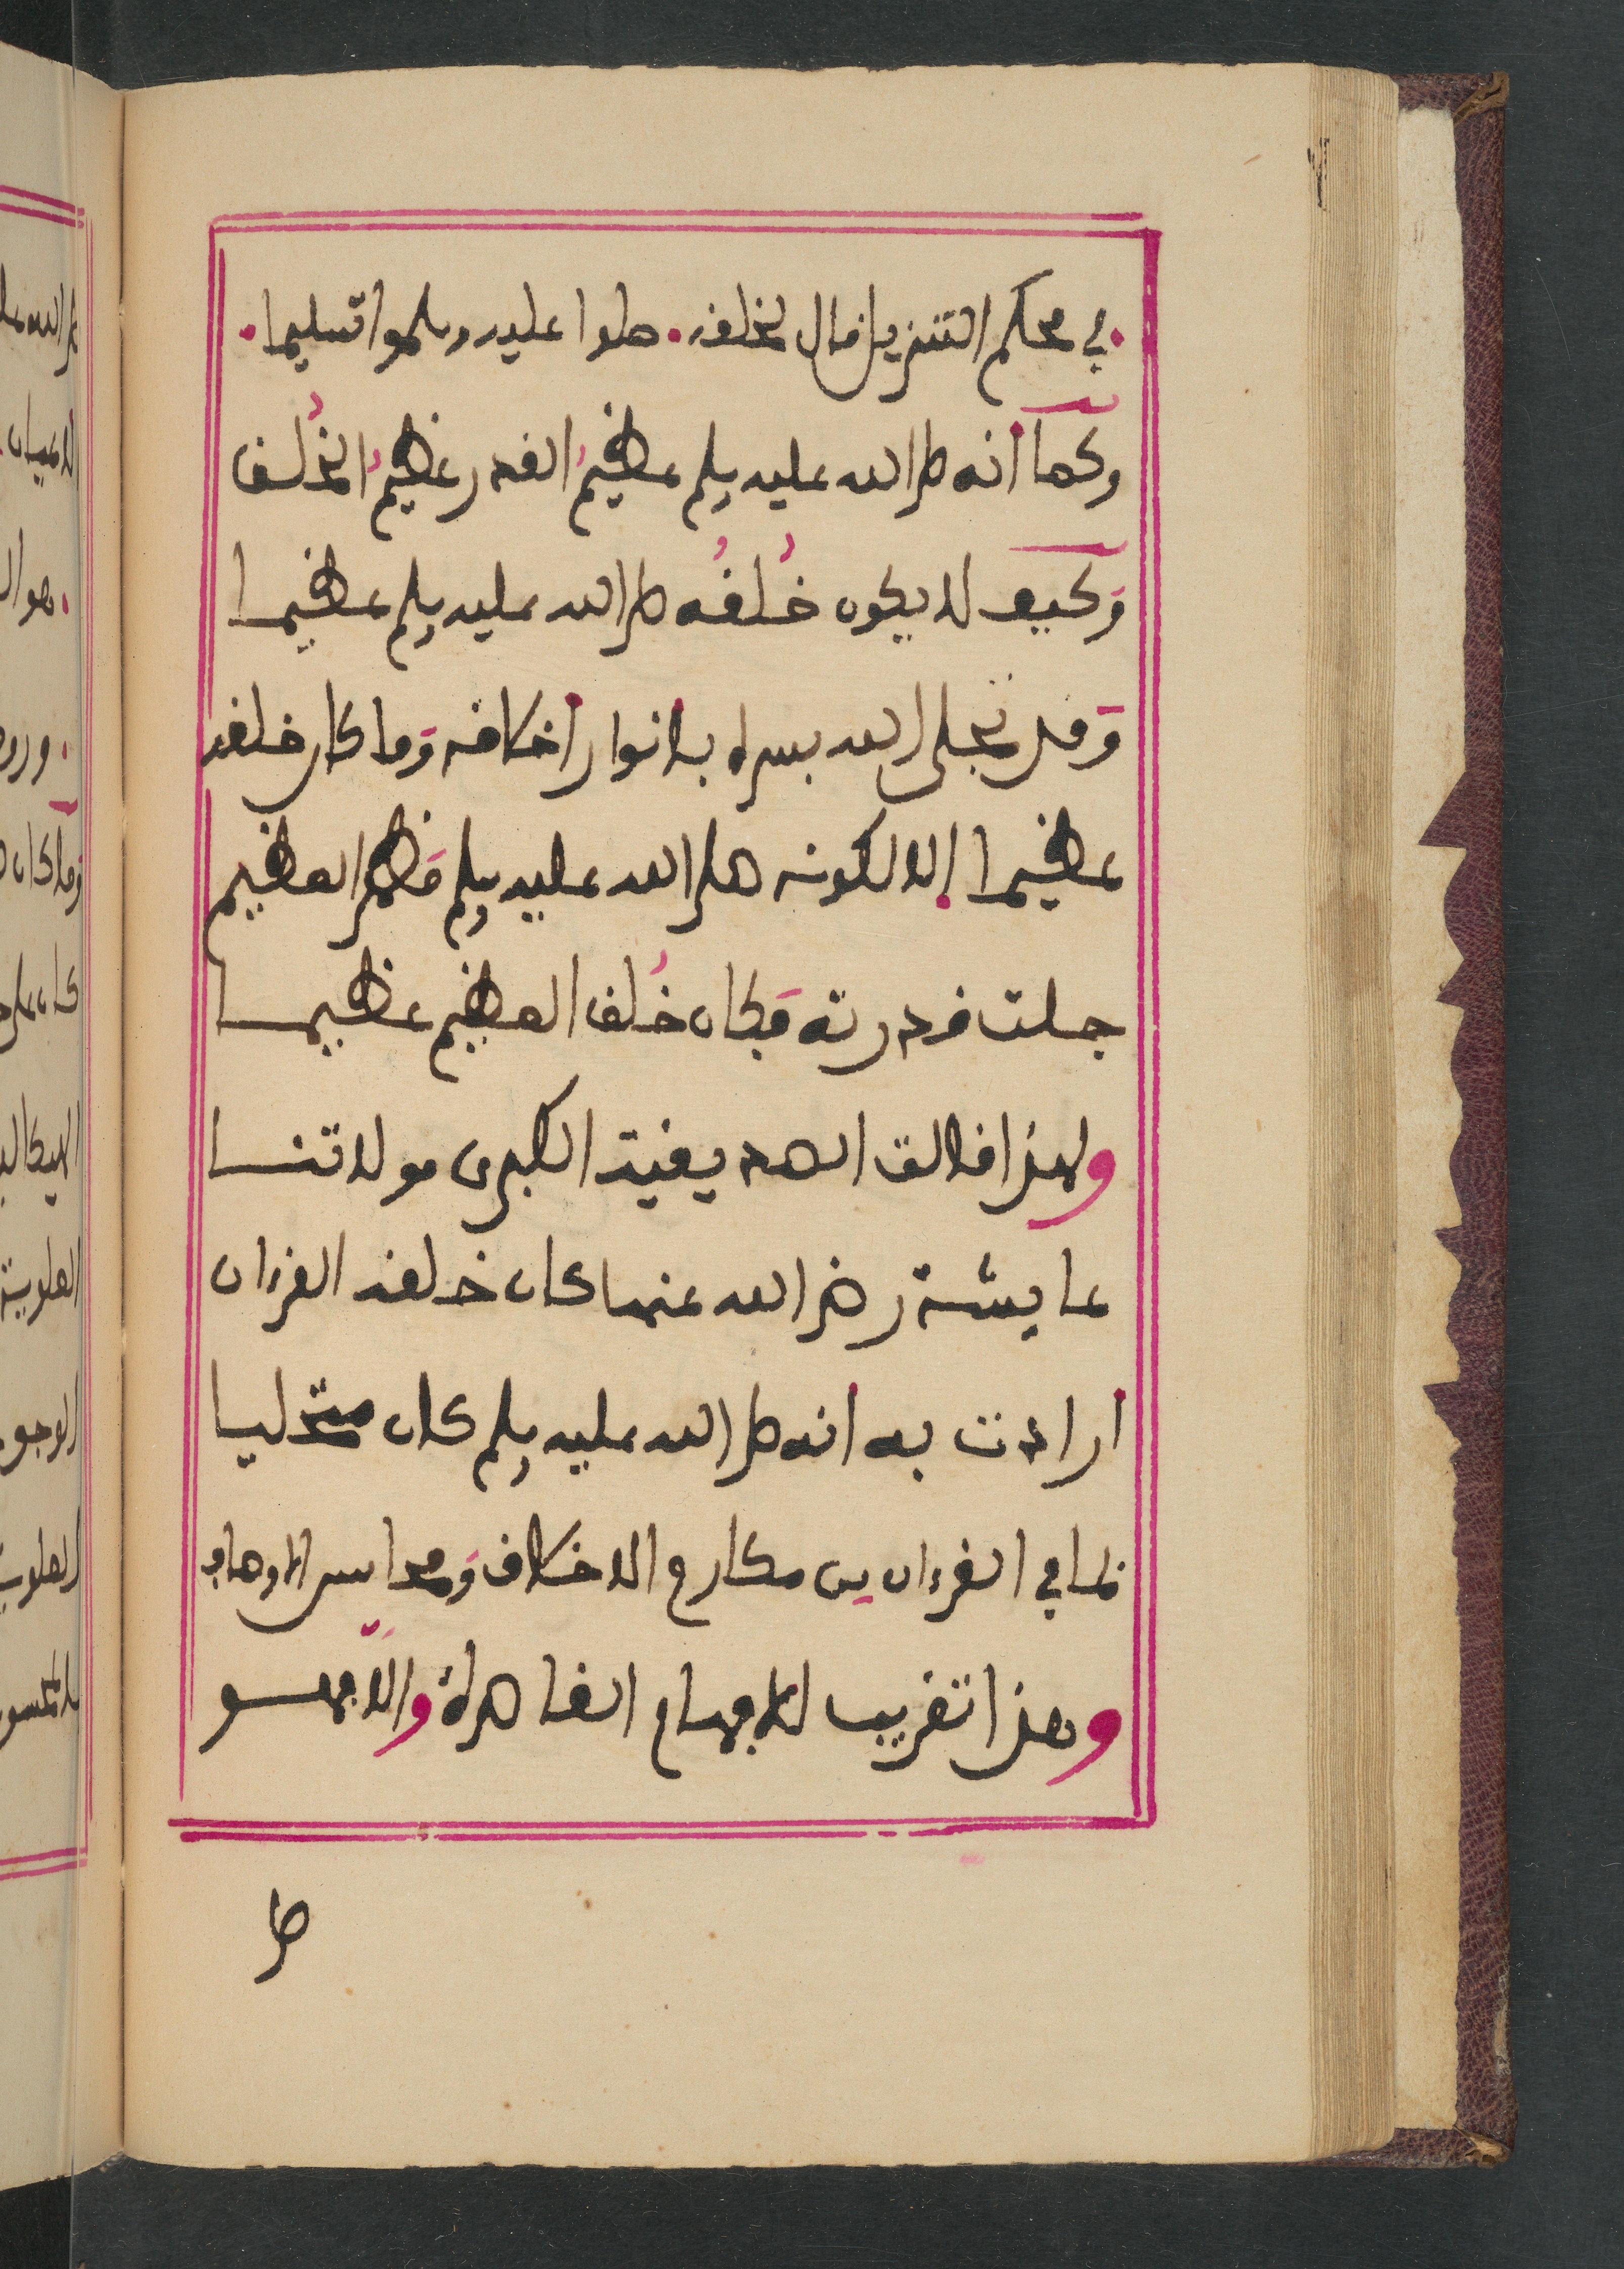 في محكم التنزيل قال لخلفه. صلوا عليه وسلموا تسليما.
وكما أنه صلى الله عليه وسلم عظيمُ القدر عظيمُ الخُلق
وَكيف لا يكون خُلقُه صلى الله عليه وسلم عظيما
وَقد تجلى الله بسره بأنوار أخلاقه وَما كان خلقه
عظيما إلا لكونه صلى الله عليه وسلم مَظهر العظيم
جلت قدرته فَكان خُلق العظيم عظيما
ولهذا قالت الصديقية الكبرى مولاتنا
عايشة رضي الله عنها كان خلقه القرءان
أرادت به أنه صلى الله عليه وسلم كان متخليا
بما في القرءان من مكارم الاخلاق وَمحاسن الاوصاف
وهذا تقريب للافهام القاصرة والَّا فهو
ص